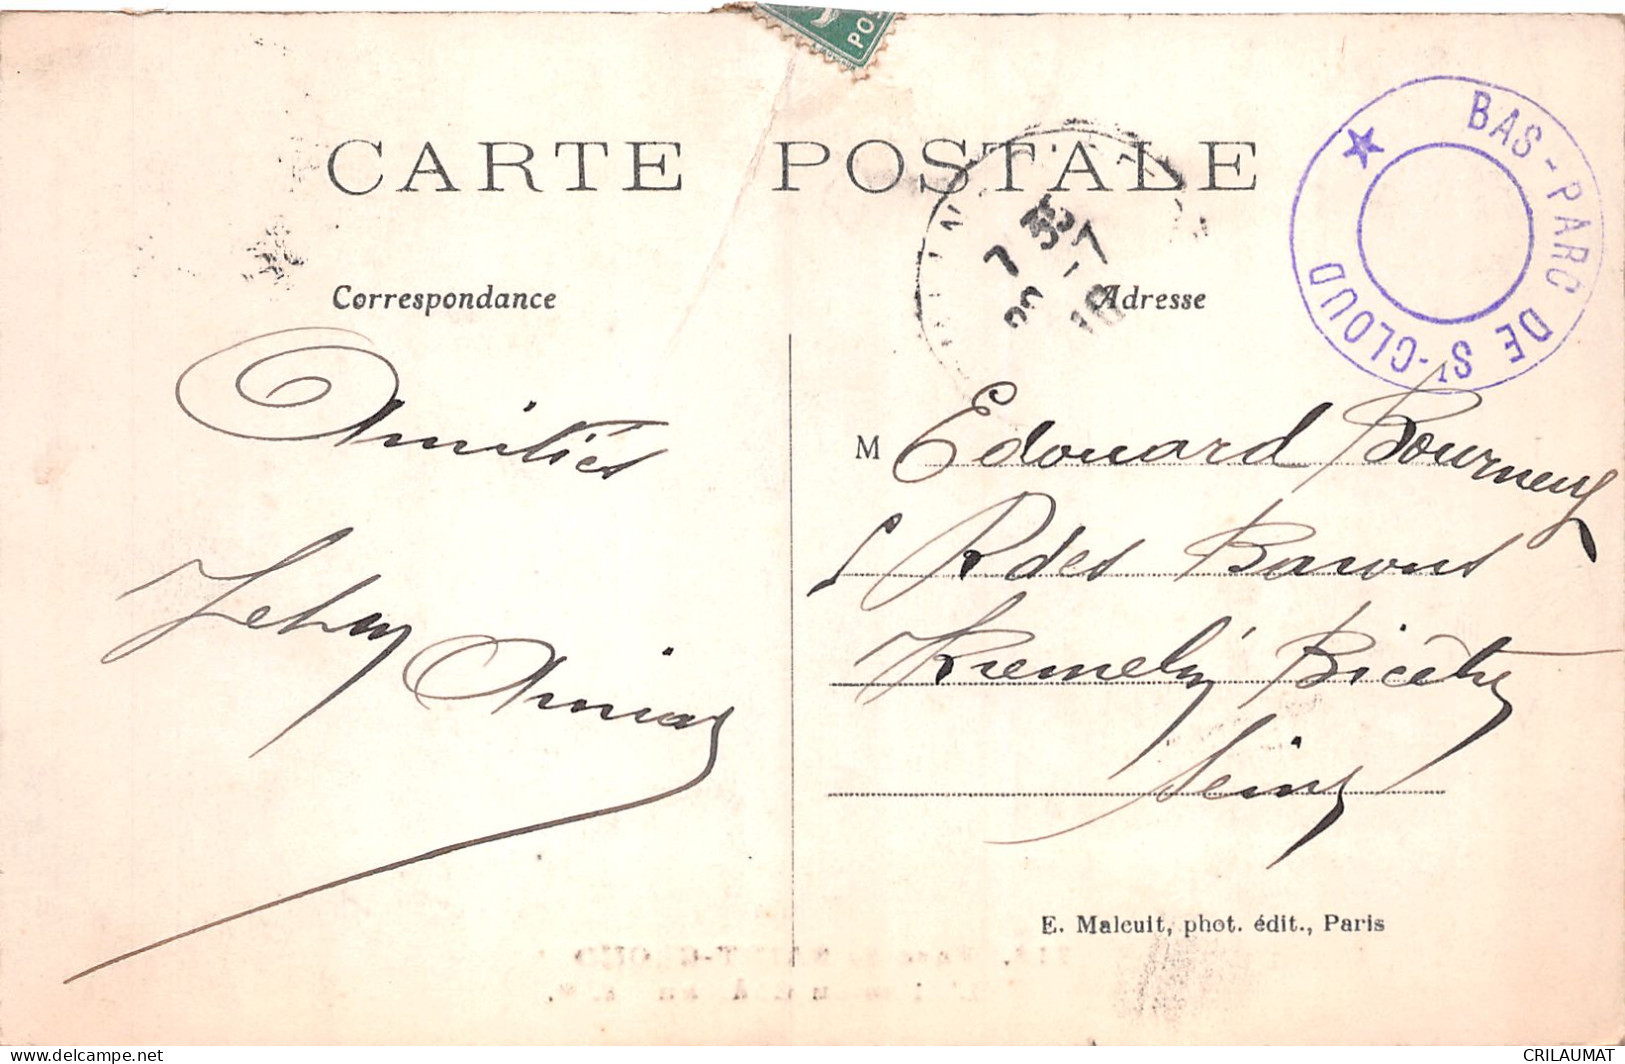 POS
CARTE POSTALE
BAS-PARC DE St-CLOUD
7 35
-7
Correspondance
Adresse
Amitiés
M Edouard Bourneuf
R des Barons
Kremelin Bicêtre
Seine
E. Malcuit, phot. édit., Paris
www.delcampe.net
CRILAUMAT